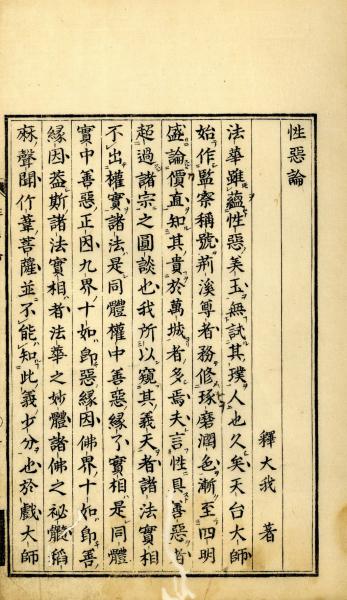 性惡論
釋大我 著
法華雖蘊性惡美玉無試其璞人也久矣天台大師
始作監察稱號荊溪尊者務修琢磨潤色漸至四明
盛論價直知其貴於萬城者多焉夫言性具善惡者
超過諸宗之圓談也我所以窺其義天者諸法實相
不出權實諸法是同體權中善惡緣了實相是同體
實中善惡正因九界十如即惡緣因佛界十如即善
緣因蓋斯諸法實相者法華之妙體諸佛之祕髓
麻聲聞竹葦菩薩並不能知此義少分也於戲大師